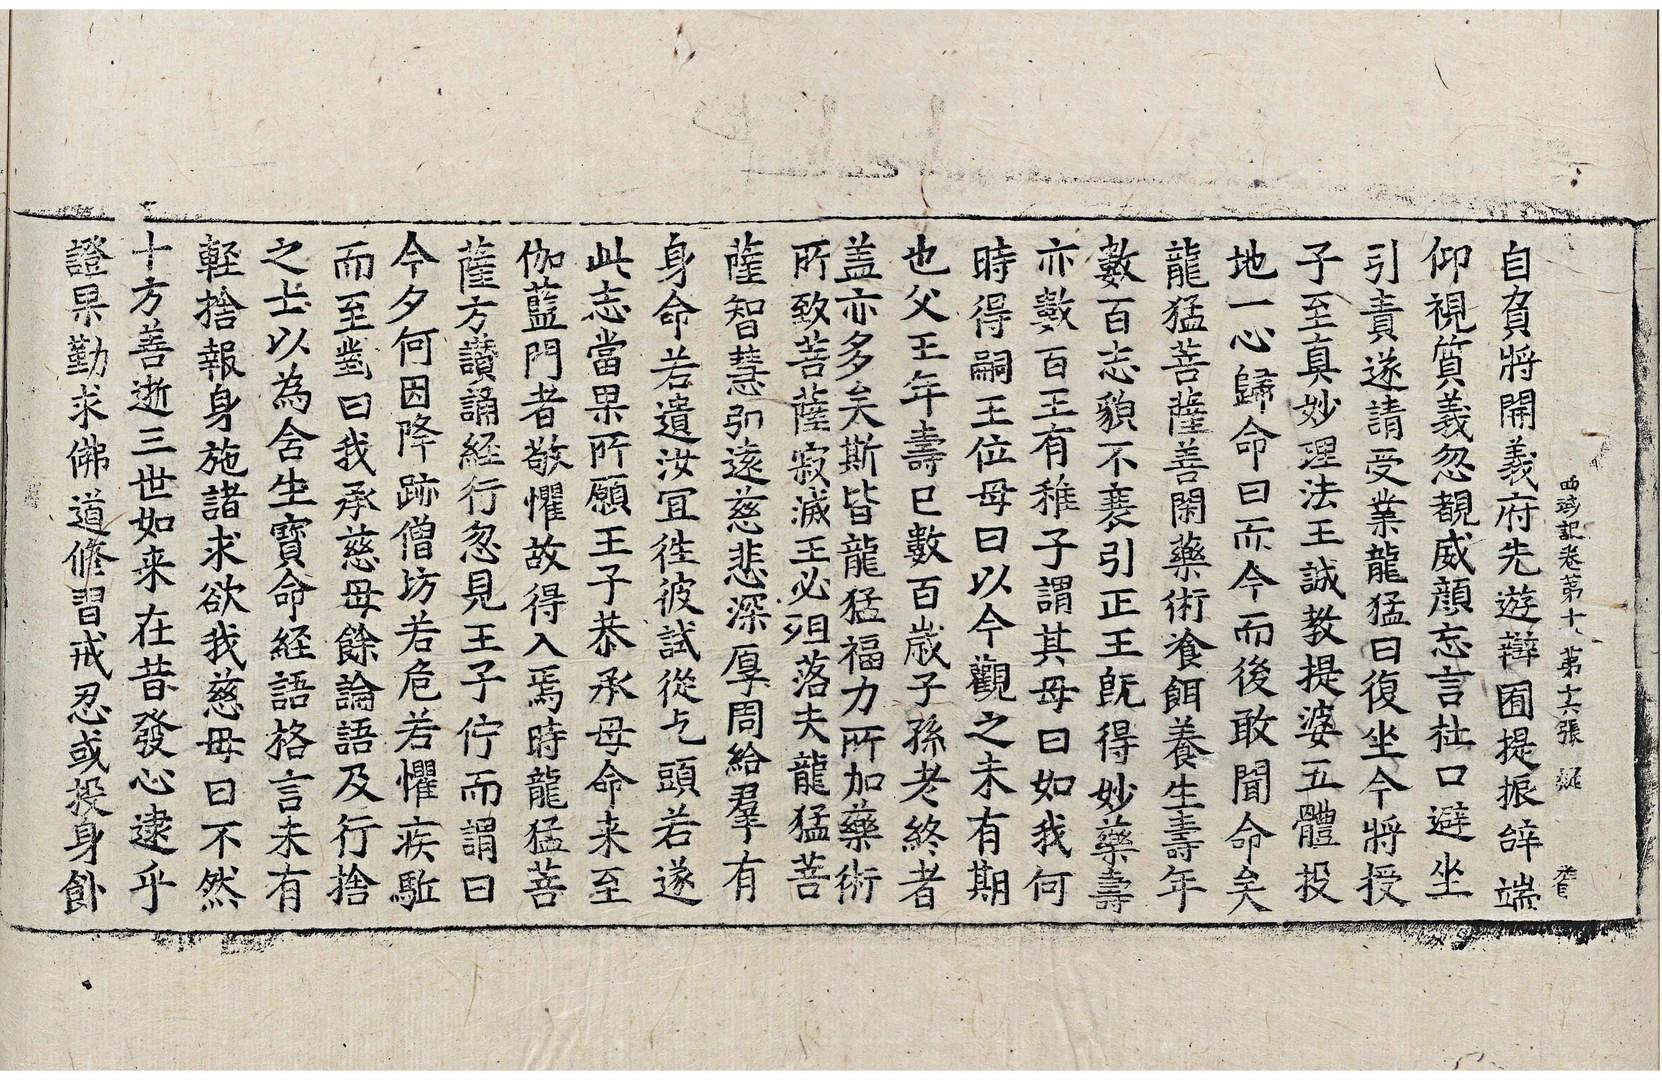 西域記卷第十 第十六張 㲲
自負將開義府先遊辯囿提振辭端
仰視質義忽覩威顏忘言杜口避坐
引責遂請受業龍猛曰復坐今將授
子至真妙理法王誠教提婆五體投
地一心歸命曰而今而後敢聞命矣
龍猛菩薩善閑藥術飡餌養生壽年
數百志貌不衰引正王旣得妙藥壽
亦數百王有稚子謂其母曰如我何
時得嗣王位母曰以今觀之未有期
也父王年壽已數百歲子孫老終者
盖亦多矣斯皆龍猛福力所加藥術
所致菩薩寂滅王必殂落夫龍猛菩
薩智慧弘遠慈悲深厚周給羣有
身命若遺汝宜徃彼試從乞頭若遂
此志當果所願王子恭承母命来至
伽藍門者敬懼故得入焉時龍猛菩
薩方讃誦経行忽見王子佇而謂曰
今夕何因降跡僧坊若危若懼疾駈
而至對曰我承慈母餘論語及行捨
之士以為含生寶命経語格言未有
軽捨報身施諸求欲我慈母曰不然
十方善逝三世如来在昔發心逮乎
證果勤求佛道修習戒忍或投身飤